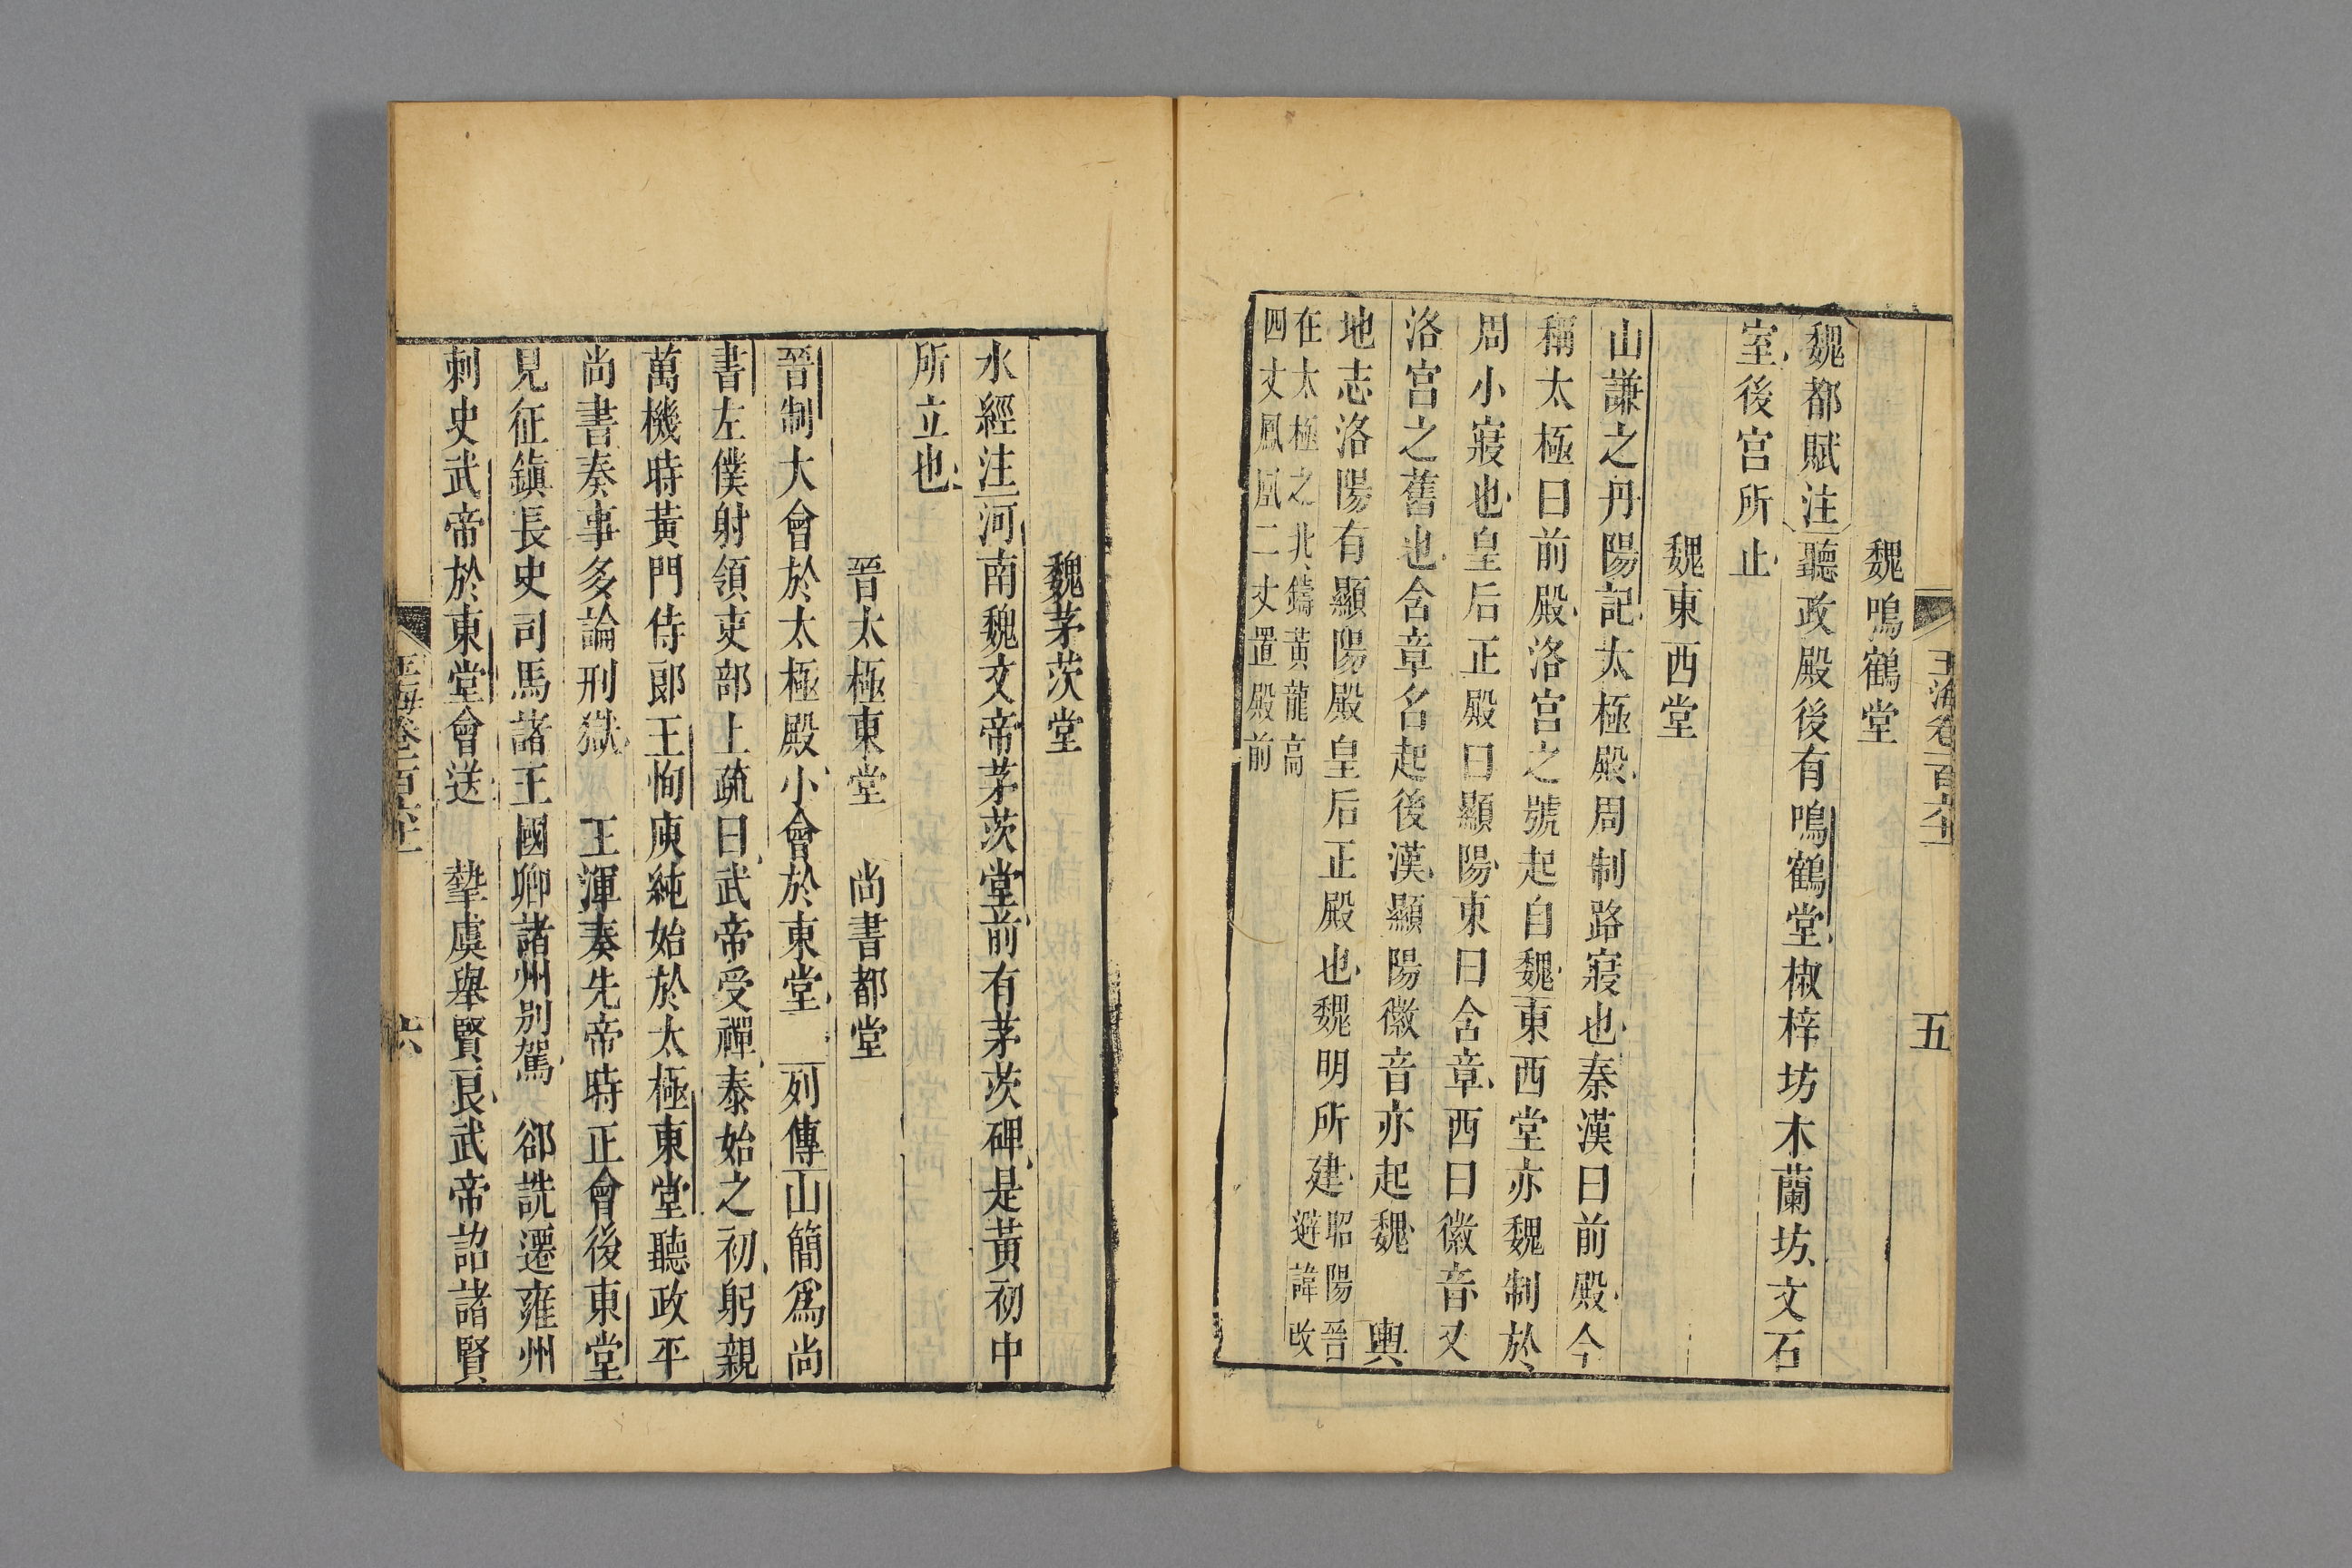 玉海卷一百六十一 五
魏鳴鶴堂
魏都賦注聽政殿後有鳴鶴堂椒梓坊木蘭坊文石
室後宮所止
魏東西堂
山謙之丹陽記太極殿周制路寢也秦漢曰前殿今
稱太極曰前殿洛宮之號起自魏東西堂亦魏制於
周小寢也皇后正殿曰顯陽東曰含章西曰徽音又
洛宮之舊也含章名起後漢顯陽徽音亦起魏 輿
地志洛陽有顯陽殿皇后正殿也魏明所建昭陽晉避諱改
在太極之北鑄黃龍高
四丈鳳凰二丈置殿前
魏茅茨堂
水經注河南魏文帝茅茨堂前有茅茨碑是黃初中
所立也
晉太極東堂 尚書都堂
晉制大會於太極殿小會於東堂 列傳山簡爲尚
書左僕射領吏部上疏曰武帝受禪泰始之初躬親
萬機時黃門侍郎王恂庾純始於太極東堂聽政平
尚書奏事多論刑獄 王渾奏先帝時正會後東堂
見征鎮長史司馬諸王國卿諸州别駕 郤詵遷雍州
刺史武帝於東堂會送 摯虞舉賢良武帝詔諸賢
玉海卷一百六十一 六